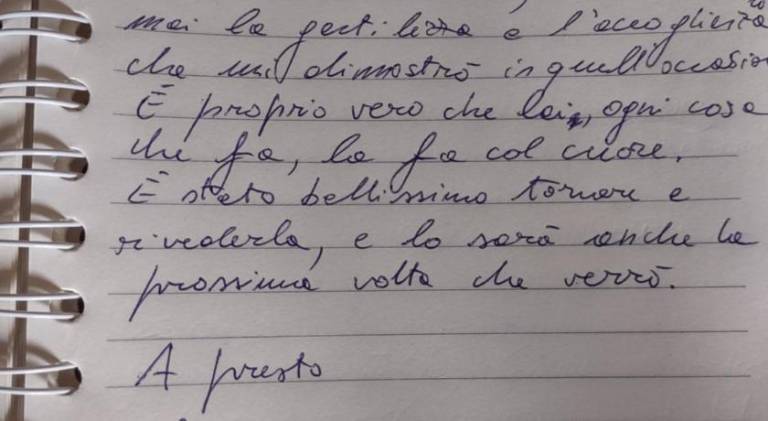 mai la gentilezza e l'accoglienza
che mi dimostrò in quell'occasion
È proprio vero che lei, ogni cosa
che fa, la fa col cuore.
È stato bellissimo tornare e
rivederla, e lo sarà anche la
prossima volta che verrò.
A presto